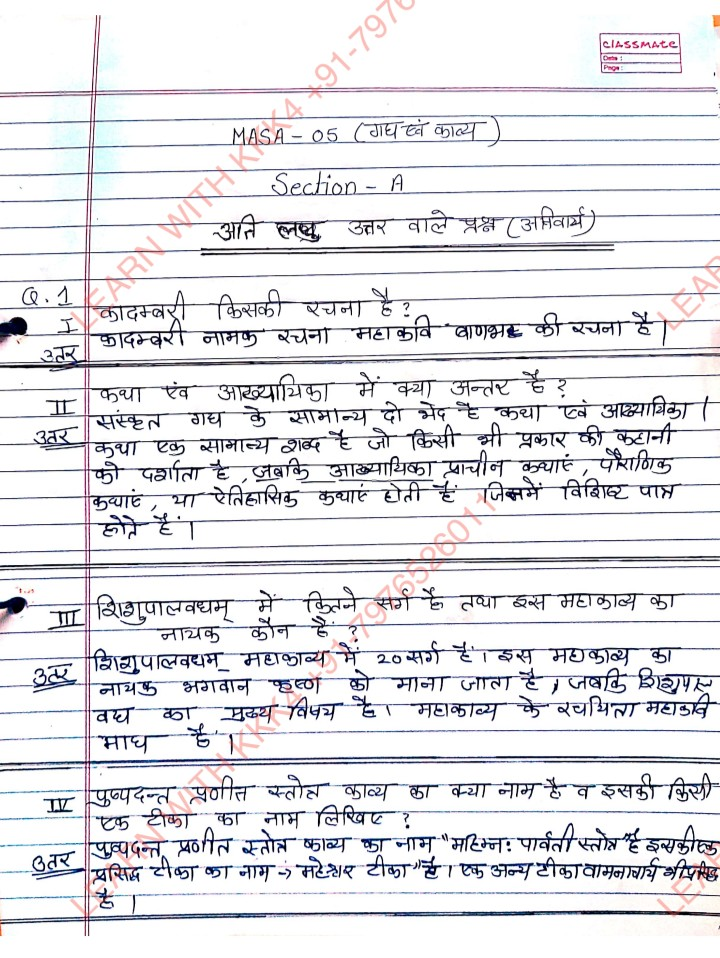 classmate
Date :
Page :
MASA - 05 (गद्य एवं काव्य)
Section - A
अति लघु उत्तर वाले प्रश्न (अनिवार्य)
Q. 1
I कादम्बरी किसकी रचना है ?
उत्तर कादम्बरी नामक रचना महाकवि बाणभट्ट की रचना है |
II कथा एंव आख्यायिका में क्या अन्तर है ?
उत्तर संस्कृत गद्य के सामान्य दो भेद है कथा एवं आख्यायिका |
कथा एक सामान्य शब्द है जो किसी भी प्रकार की कहानी
को दर्शाता है, जबकि आख्यायिका प्राचीन कथाएं, पौराणिक
कथाएं, या ऐतिहासिक कथाएं होती हैं जिसमें विशिष्ट पात्र
होते हैं |
III शिशुपालवधम् में कितने सर्ग है तथा इस महाकाव्य का
नायक कौन हैं ?
उत्तर शिशुपालवधम् महाकाव्य में 20 सर्ग हैं | इस महाकाव्य का
नायक भगवान कृष्ण को माना जाता है, जबकि शिशुपाल
वध का मुख्य विषय है | महाकाव्य के रचयिता महाकवि
माघ हैं |
IV पुष्पदन्त प्रणीत स्तोत्र काव्य का क्या नाम है व इसकी किसी
एक टीका का नाम लिखिए ?
उत्तर पुष्पदन्त प्रणीत स्तोत्र काव्य का नाम "महिम्न: पार्वती स्तोत्र" है इसकी एक
प्रसिद्ध टीका का नाम → महेश्वर टीका" है | एक अन्य टीका वामनाचार्य भी प्रसिद्ध
है |
LEARN WITH KKK4 +91-7976526011